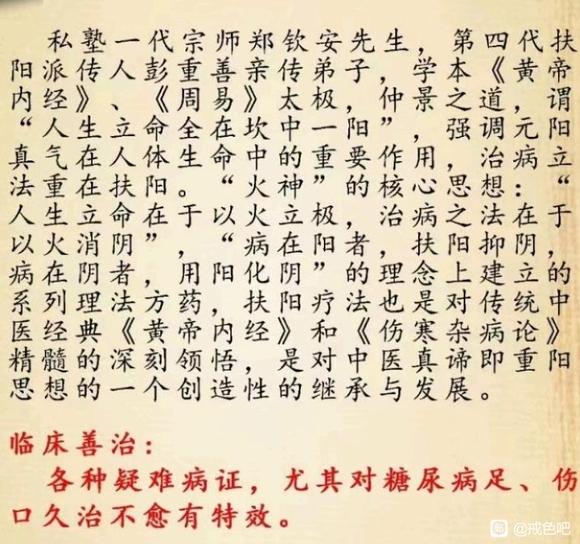 私塾一代宗师郑钦安先生，第四代扶
阳派传人彭重善亲传弟子，学本《黄帝
内经》、《周易》太极，仲景之道，谓
“人生立命全在坎中一阳”，强调元阳
真气在人体生命中的重要作用，治病立
法重在扶阳。“火神”的核心思想：“
人生立命在于以火立极，治病之法在于
以火消阴”，“病在阳者，扶阳抑阴，
病在阴者，用阳化阴”的理念上建立的
系列理法方药，扶阳疗法也是对传统中
医经典《黄帝内经》和《伤寒杂病论》
精髓的深刻领悟，是对中医真谛即重阳
思想的一个创造性的继承与发展。
临床善治：
各种疑难病证，尤其对糖尿病足、伤
口久治不愈有特效。
戒色吧